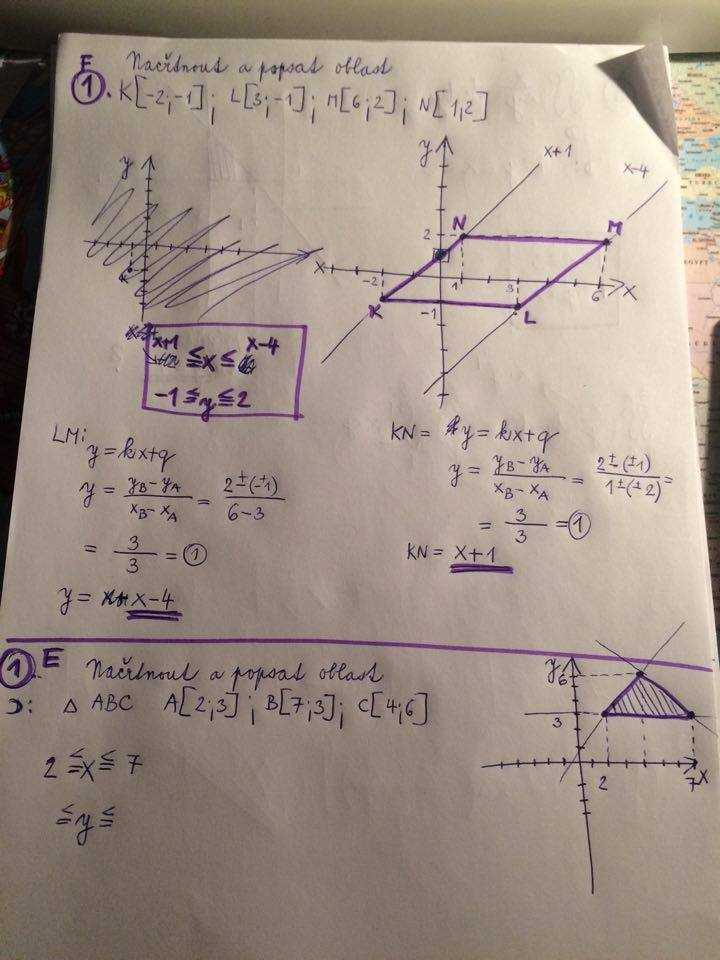 E Načrtnout a popsat oblast
1. K[-2;-1]; L[3;-1]; M[6;2]; N[1,2]
y
x
y
x+1
x-4
N
M
2
-2
1
3
6
x
K
L
-1
x+1 ≤ x ≤ x-4
-1 ≤ y ≤ 2
LM: y = kx+q
y = (yB - yA)/(xB - xA) = (2 ± (-1))/(6-3)
= 3/3 = 1
y = x-4
KN = y = kx+q
y = (yB - yA)/(xB - xA) = (2 ± (±1))/(1 ± (±2)) =
= 3/3 = 1
KN = x+1
1. E Načrtnout a popsat oblast
△ ABC A[2;3]; B[7;3]; C[4;6]
2 ≤ x ≤ 7
≤ y ≤
y
6
3
2
7
x
EGYPT